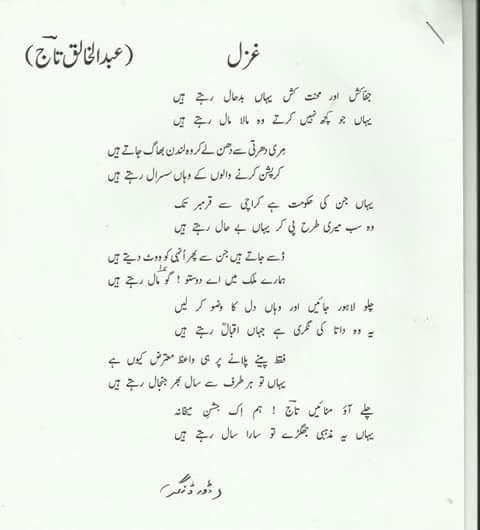 غزل (عبدالخالق تاجؔ)
جفاکش اور محنت کش یہاں بدحال رہتے ہیں
یہاں جو کچھ نہیں کرتے وہ مالا مال رہتے ہیں
مِری دھرتی سے دھن لے کر وہ لندن بھاگ جاتے ہیں
کرپشن کرنے والوں کے وہاں سسرال رہتے ہیں
یہاں جن کی حکومت ہے کراچی سے قرمبر تک
وہ سب میری طرح پی کر یہاں بے حال رہتے ہیں
ڈسے جاتے ہیں جن سے پھر اُنہی کو ووٹ دیتے ہیں
ہمارے ملک میں اے دوستو ! گومال رہتے ہیں
چلو لاہور جائیں اور وہاں دل کا وضو کر لیں
یہ وہ داتا کی نگری ہے جہاں اقبالؒ رہتے ہیں
فقط پینے پلانے پر ہی واعظ معترض کیوں ہے
یہاں تو ہر طرف سے سال بھر جنجال رہتے ہیں
چلے آؤ منائیں تاجؔ ! ہم اِک جشنِ میخانہ
یہاں یہ مذہبی جھگڑے تو سارا سال رہتے ہیں